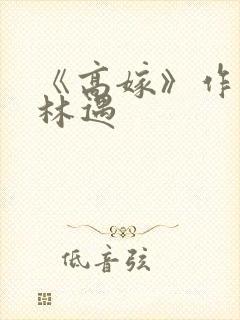 《高嫁》作
林遇
低音弦